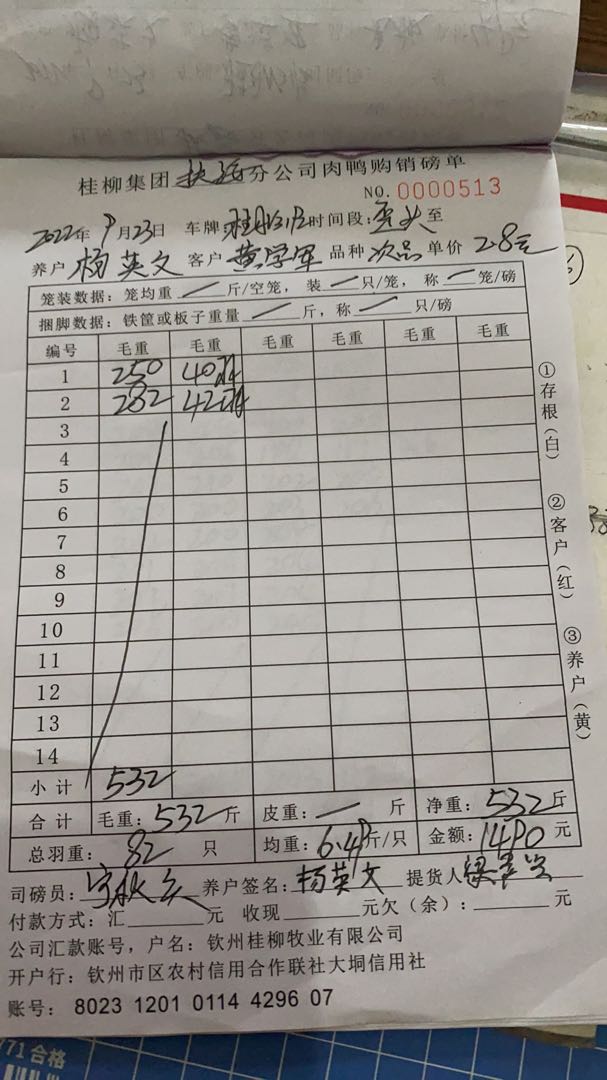 桂柳集团 分公司肉鸭购销磅单
NO. 0000513
2022年9月23日 车牌 时间段: 至
养户 杨英文 客户 黄学军 品种 次品 单价 2.8元
笼装数据: 笼均重 斤/空笼, 装 只/笼, 称 笼/磅
捆脚数据: 铁筐或板子重量 斤, 称 只/磅
编号 毛重 毛重 毛重 毛重 毛重 毛重
1 250 40羽
2 282 42羽
3
4
5
6
7
8
9
10
11
12
13
14
小计 532
合计 毛重: 532斤 皮重: 斤 净重: 532斤
总羽重: 82 只 均重: 6.49斤/只 金额: 1490元
司磅员: 养户签名: 杨英文 提货人
付款方式: 汇 元 收现 元欠(余): 元
公司汇款账号, 户名: 钦州桂柳牧业有限公司
开户行: 钦州市区农村信用合作联社大垌信用社
账号: 8023 1201 0114 4296 07
①存根(白)
②客户(红)
③养户(黄)
771合格